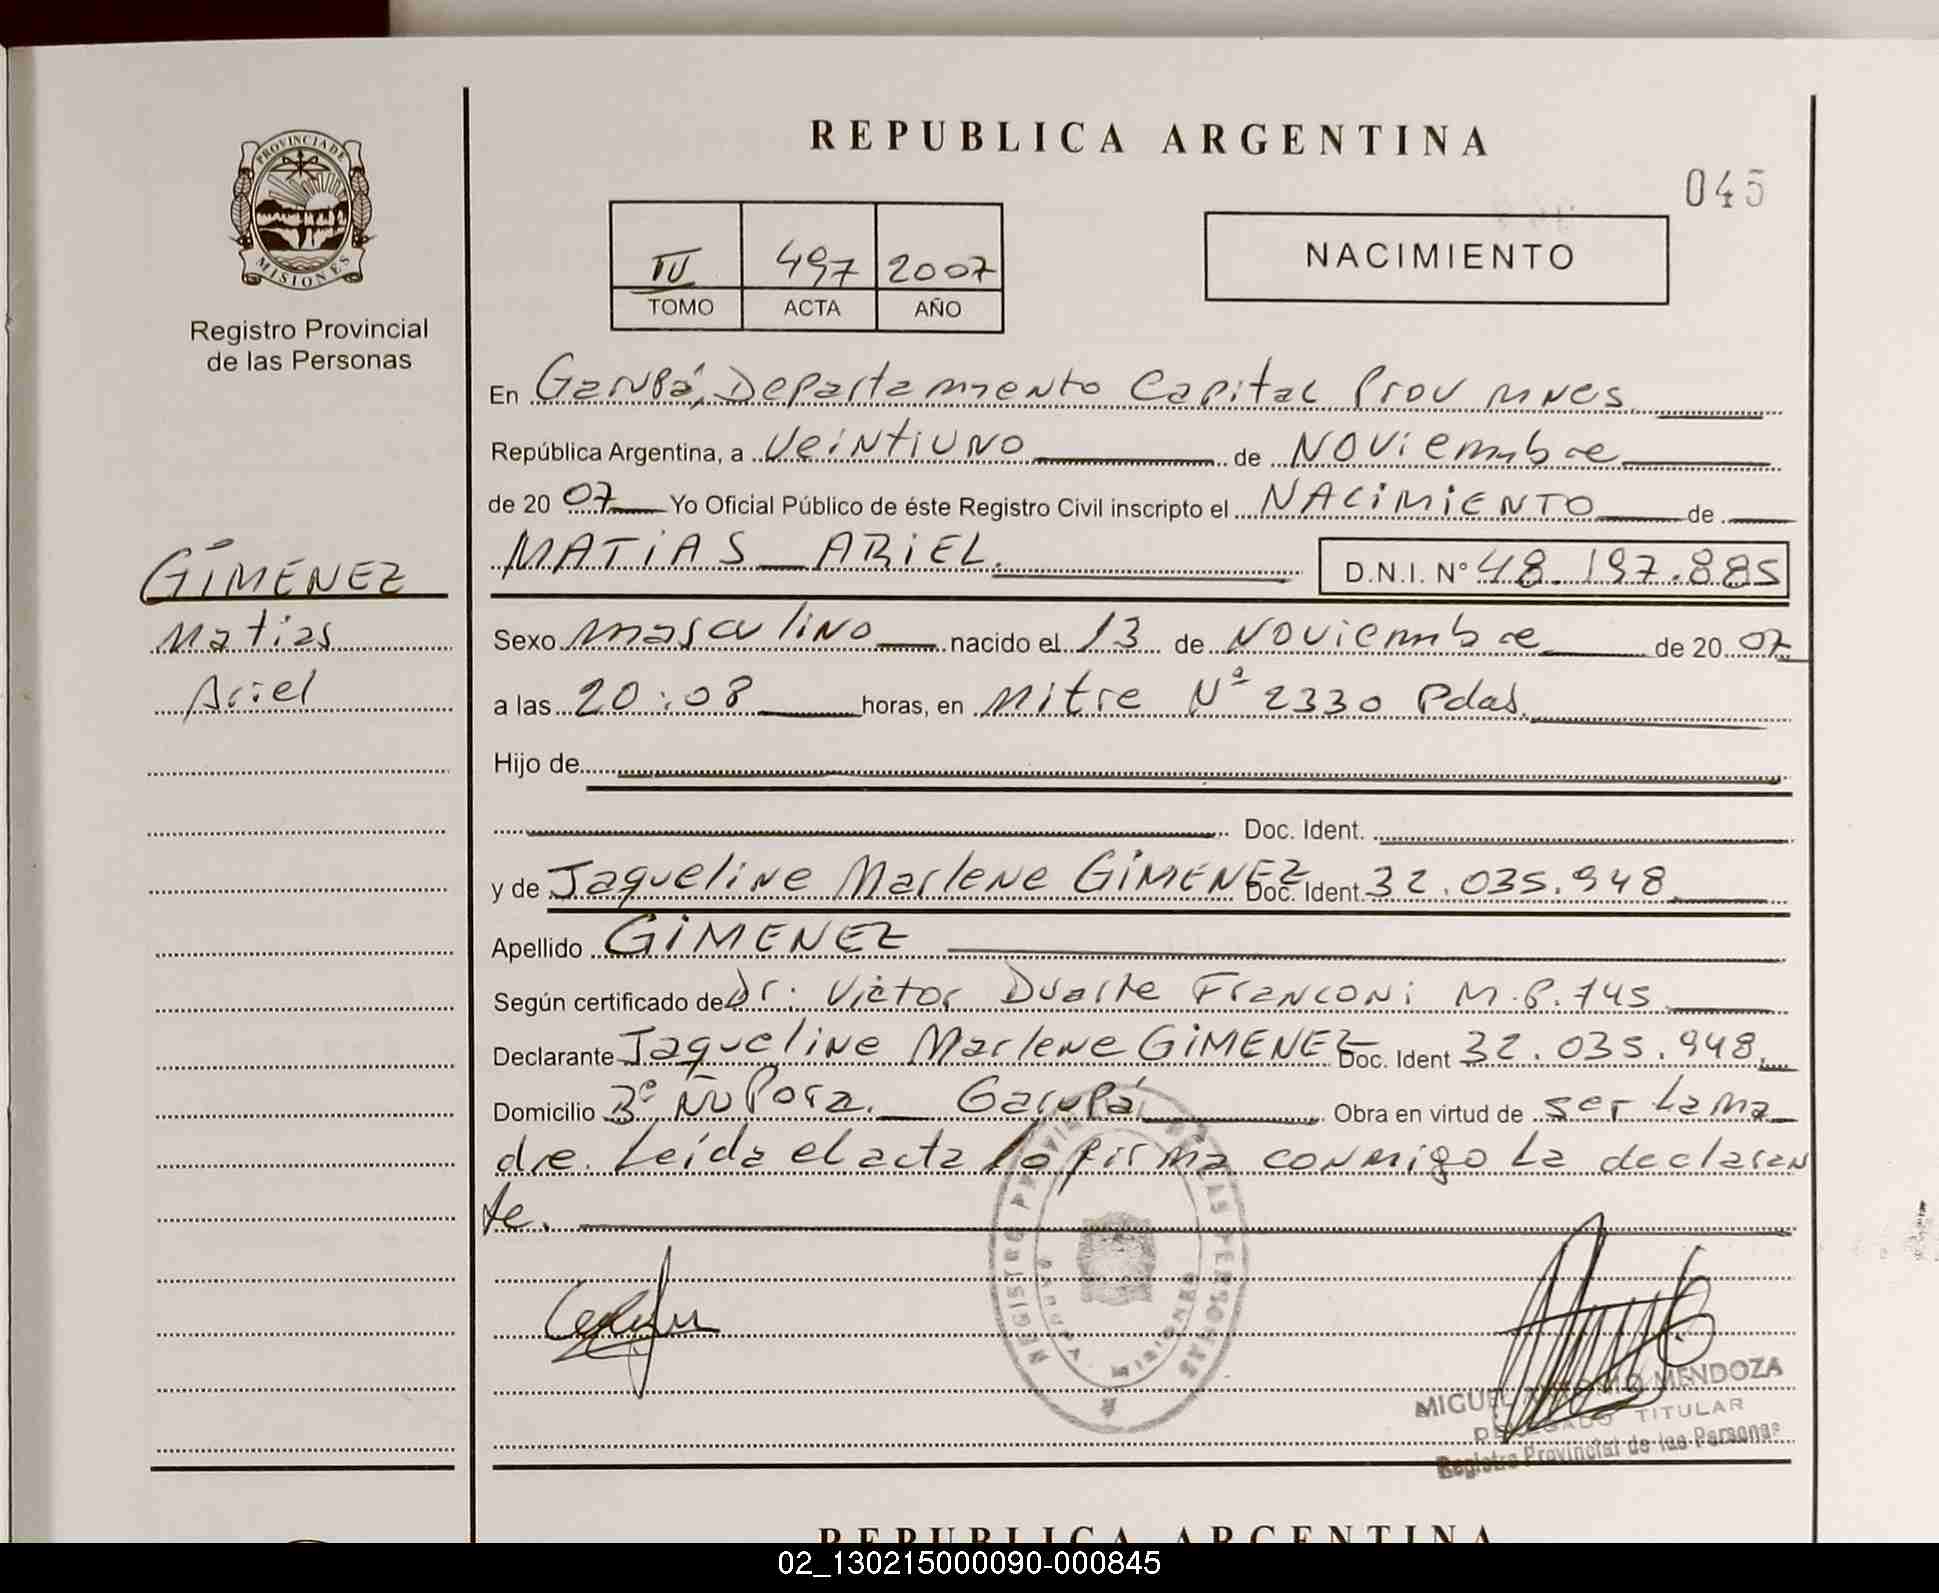 REPUBLICA ARGENTINA
045
PROVINCIA DE
MISIONES
Registro Provincial
de las Personas
IV 497 2007
TOMO ACTA AÑO
NACIMIENTO
En Garupá, Departamento Capital Prov mnes
República Argentina, a Veintiuno de Noviembre
de 20 07 Yo Oficial Público de éste Registro Civil inscripto el NACIMIENTO de
MATIAS ARIEL. D.N.I. N° 48.197.885
GIMENEZ
Matias
Ariel
Sexo masculino nacido el 13 de Noviembre de 20 07
a las 20:08 horas, en Mitre Nº 2330 Pdas.
Hijo de
Doc. Ident.
y de Jaqueline Marlene GIMENEZ Doc. Ident. 32.035.948
Apellido GIMENEZ
Según certificado de Dr: Victor Duarte Franconi M.P. 745
Declarante Jaqueline Marlene GIMENEZ Doc. Ident 32.035.948
Domicilio Bº Ñu Pora. Garupá Obra en virtud de ser La ma
dre. Leída el acta la firma conmigo La declaran
te.
REGISTRO PROVINCIAL DE LAS PERSONAS
GARUPA MISIONES
MIGUEL ANTONIO MENDOZA
DELEGADO TITULAR
Registro Provincial de las Personas
REPUBLICA ARGENTINA
02_130215000090-000845